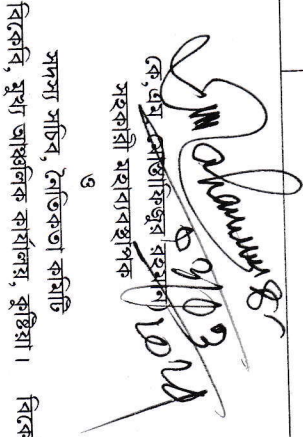 (কে,এম মোস্তাফিজুর রহমান)
সহকারী মহাব্যবস্থাপক
ও
সদস্য সচিব, নৈতিকতা কমিটি
বিকেবি, মুখ্য আঞ্চলিক কার্যালয়, কুষ্টিয়া। বিকে